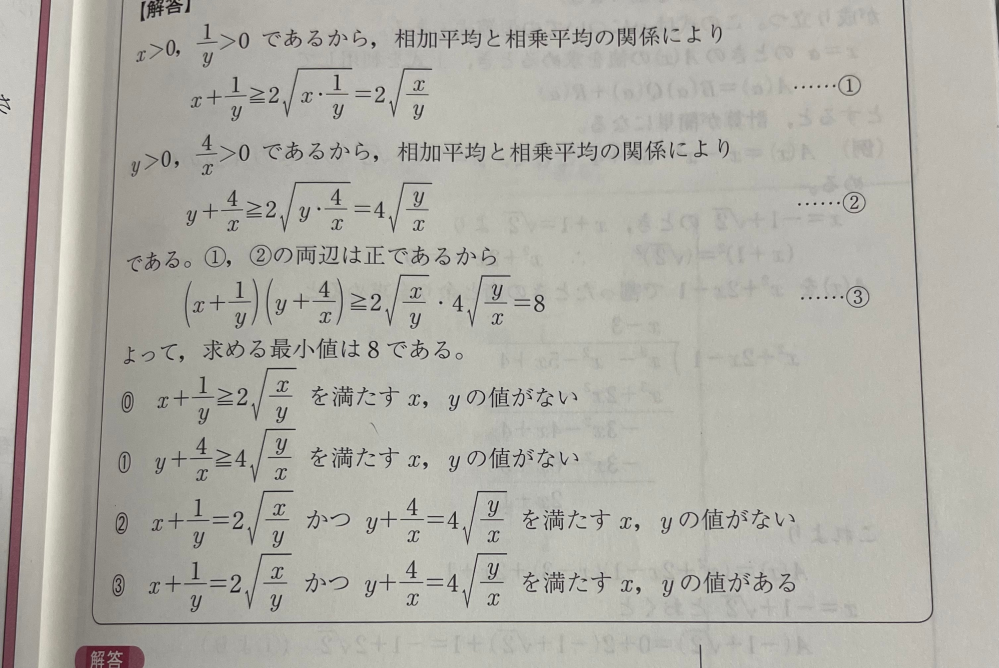 【解答】
x>0, 1/y>0 であるから，相加平均と相乗平均の関係により
x+1/y≧2√(x・1/y)=2√(x/y) ……①
y>0, 4/x>0 であるから，相加平均と相乗平均の関係により
y+4/x≧2√(y・4/x)=4√(y/x) ……②
である。①，②の両辺は正であるから
(x+1/y)(y+4/x)≧2√(x/y)・4√(y/x)=8 ……③
よって，求める最小値は8である。
⓪ x+1/y≧2√(x/y) を満たす x，yの値がない
① y+4/x≧4√(y/x) を満たす x，yの値がない
② x+1/y=2√(x/y) かつ y+4/x=4√(y/x) を満たす x，yの値がない
③ x+1/y=2√(x/y) かつ y+4/x=4√(y/x) を満たす x，yの値がある
解答